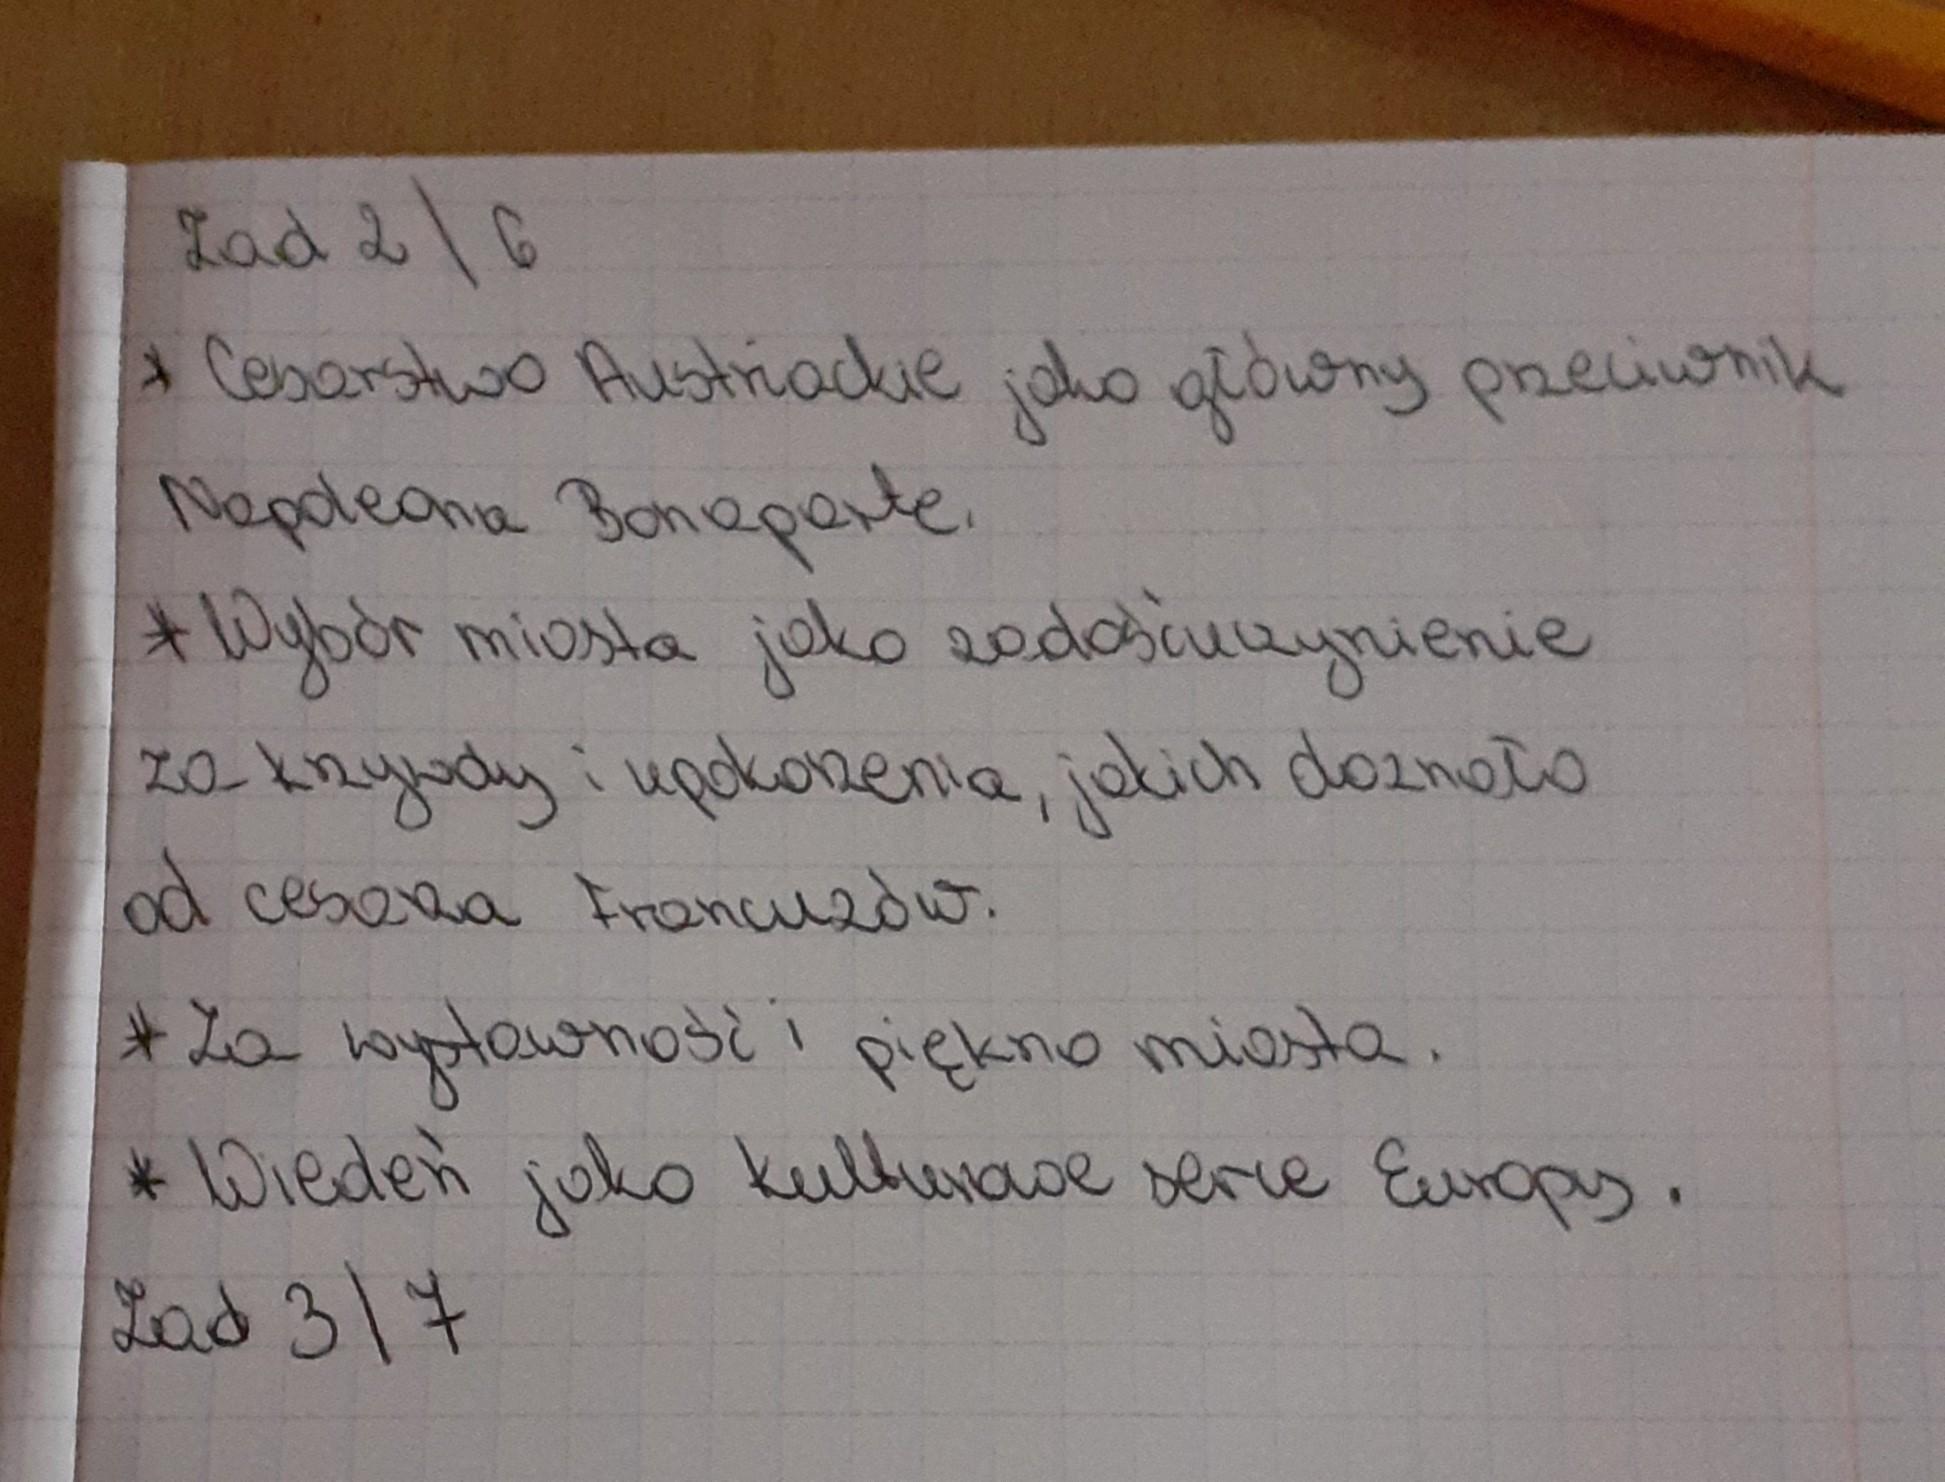 Zad 2 \ 6
* Cesarstwo Austriackie jako główny przeciwnik
Napoleona Bonaparte.
* Wybór miasta jako zadośćuczynienie
za krzywdy i upokorzenia, jakich doznało
od cesarza Francuzów.
* Za wystawność i piękno miasta.
* Wiedeń jako kulturowe serce Europy.
Zad 3 \ 7